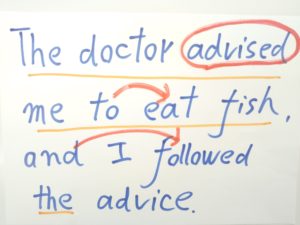 The doctor advised
me to eat fish,
and I followed
the advice.